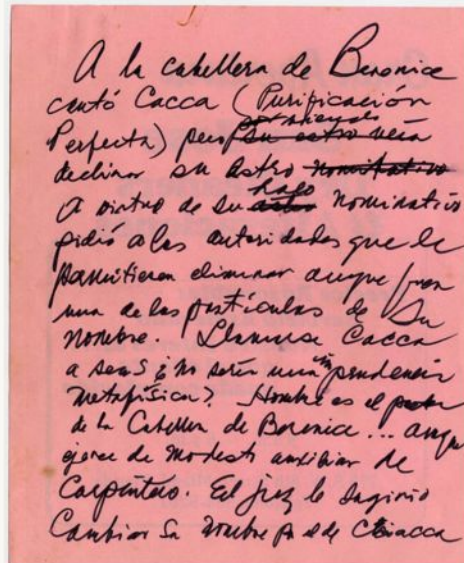 A la cabellera de Berenice
cantó Cacca (Purificación
por viendo
Perfecta) pero su astro veía
declinar su astro nominativo
hago
A virtud de su astro nominativo
pidió a las autoridades que le
permitieran eliminar aunque fuera
una de las partículas de su
nombre. Llamarse Cacca
a secas ¿no sería una imprudencia
metafísica? Hombre es el
de la Cabellera de Berenice... aunque
ejerce de modesto auxiliar de
Carpintero. El juez le sugirió
Cambiar su nombre por el de Chiacca